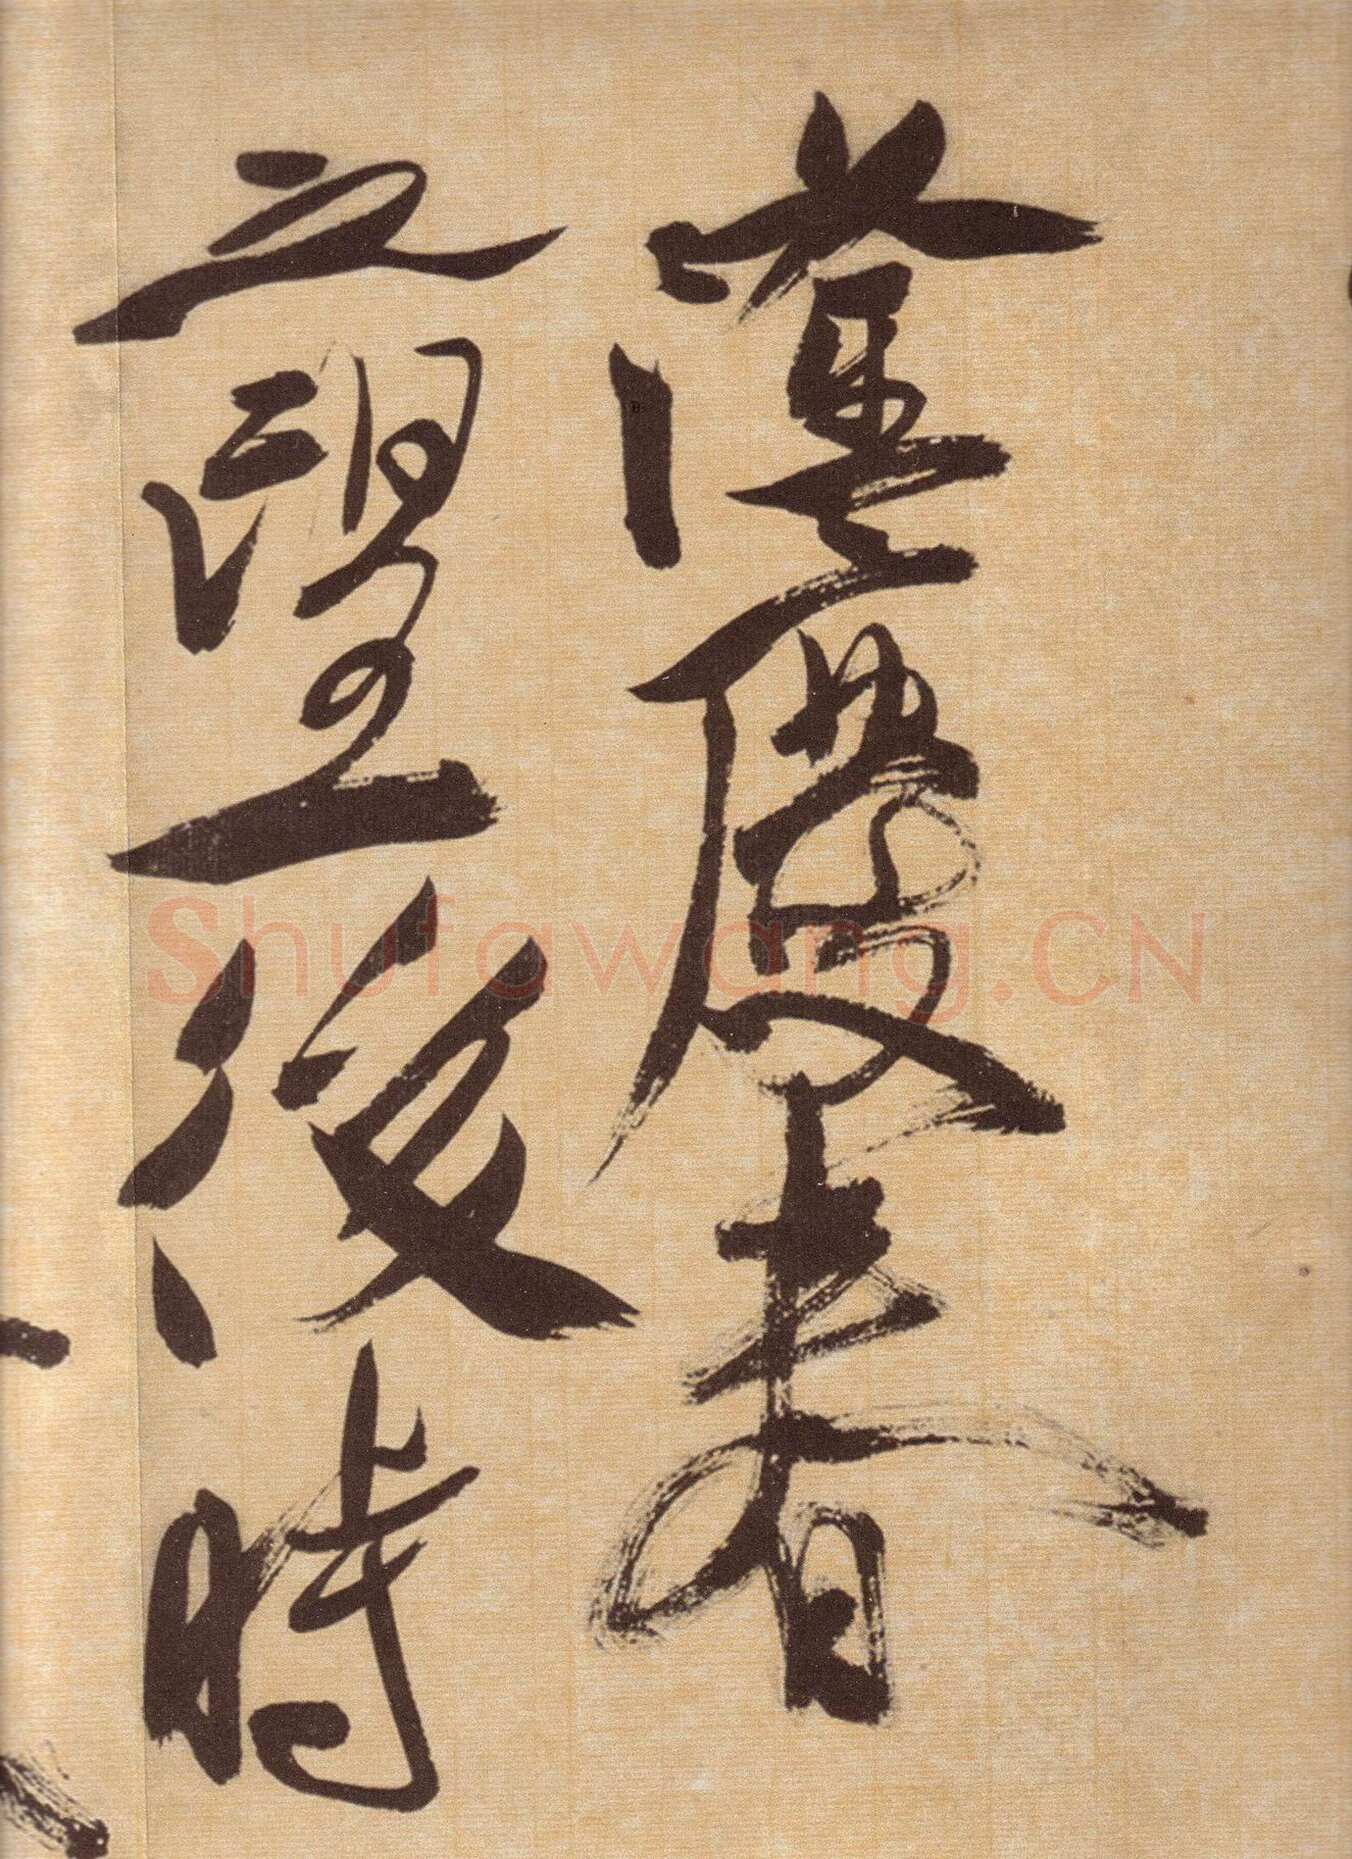 慶春
之望後時
Shufawang.CN